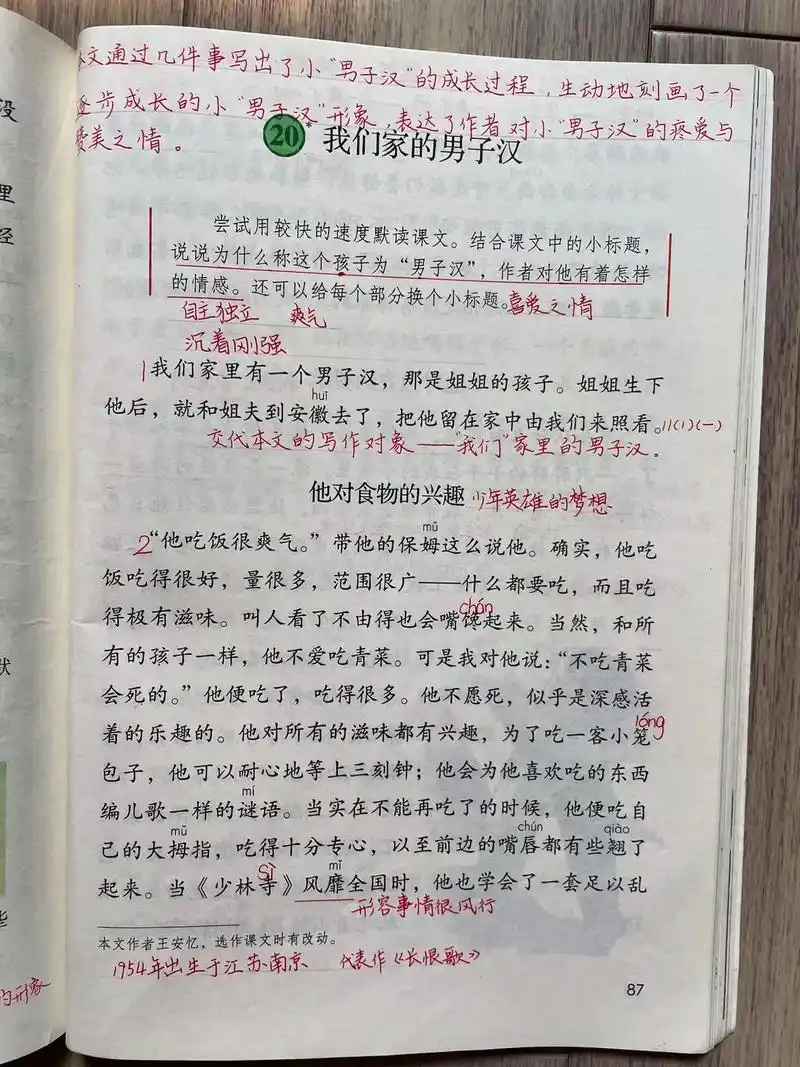 本文通过几件事写出了小“男子汉”的成长过程，生动地刻画了一个
逐步成长的小“男子汉”形象，表达了作者对小“男子汉”的疼爱与
赞美之情。
20* 我们家的男子汉
尝试用较快的速度默读课文。结合课文中的小标题，
说说为什么称这个孩子为“男子汉”，作者对他有着怎样
的情感。还可以给每个部分换个小标题。喜爱之情
自主独立 爽气
沉着刚强
1我们家里有一个男子汉，那是姐姐的孩子。姐姐生下
huī
他后，就和姐夫到安徽去了，把他留在家中由我们来照看。11(1)(一)
交代本文的写作对象——“我们”家里的男子汉。
他对食物的兴趣 少年英雄的梦想
mǔ
2“他吃饭很爽气。”带他的保姆这么说他。确实，他吃
饭吃得很好，量很多，范围很广——什么都要吃，而且吃
chán
得极有滋味。叫人看了不由得也会嘴馋起来。当然，和所
有的孩子一样，他不爱吃青菜。可是我对他说：“不吃青菜
会死的。”他便吃了，吃得很多。他不愿死，似乎是深感活
lóng
着的乐趣的。他对所有的滋味都有兴趣，为了吃一客小笼
包子，他可以耐心地等上三刻钟；他会为他喜欢吃的东西
mí
编儿歌一样的谜语。当实在不能再吃了的时候，他便吃自
mǔ chún qiào
己的大拇指，吃得十分专心，以至前边的嘴唇都有些翘了
sì mǐ
起来。当《少林寺》风靡全国时，他也学会了一套足以乱
形容事情很风行
本文作者王安忆，选作课文时有改动。
1954年出生于江苏南京 代表作《长恨歌》
87
段
里
经
默
些
的形象